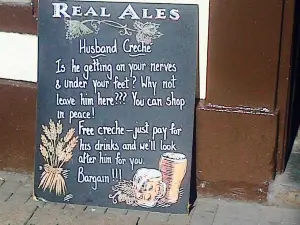 REAL ALES
Husband Creche
Is he getting on your nerves
& under your feet? Why not
leave him here??? You can shop
in peace!
Free creche - just pay for
his drinks and we'll look
after him for you.
Bargain!!!